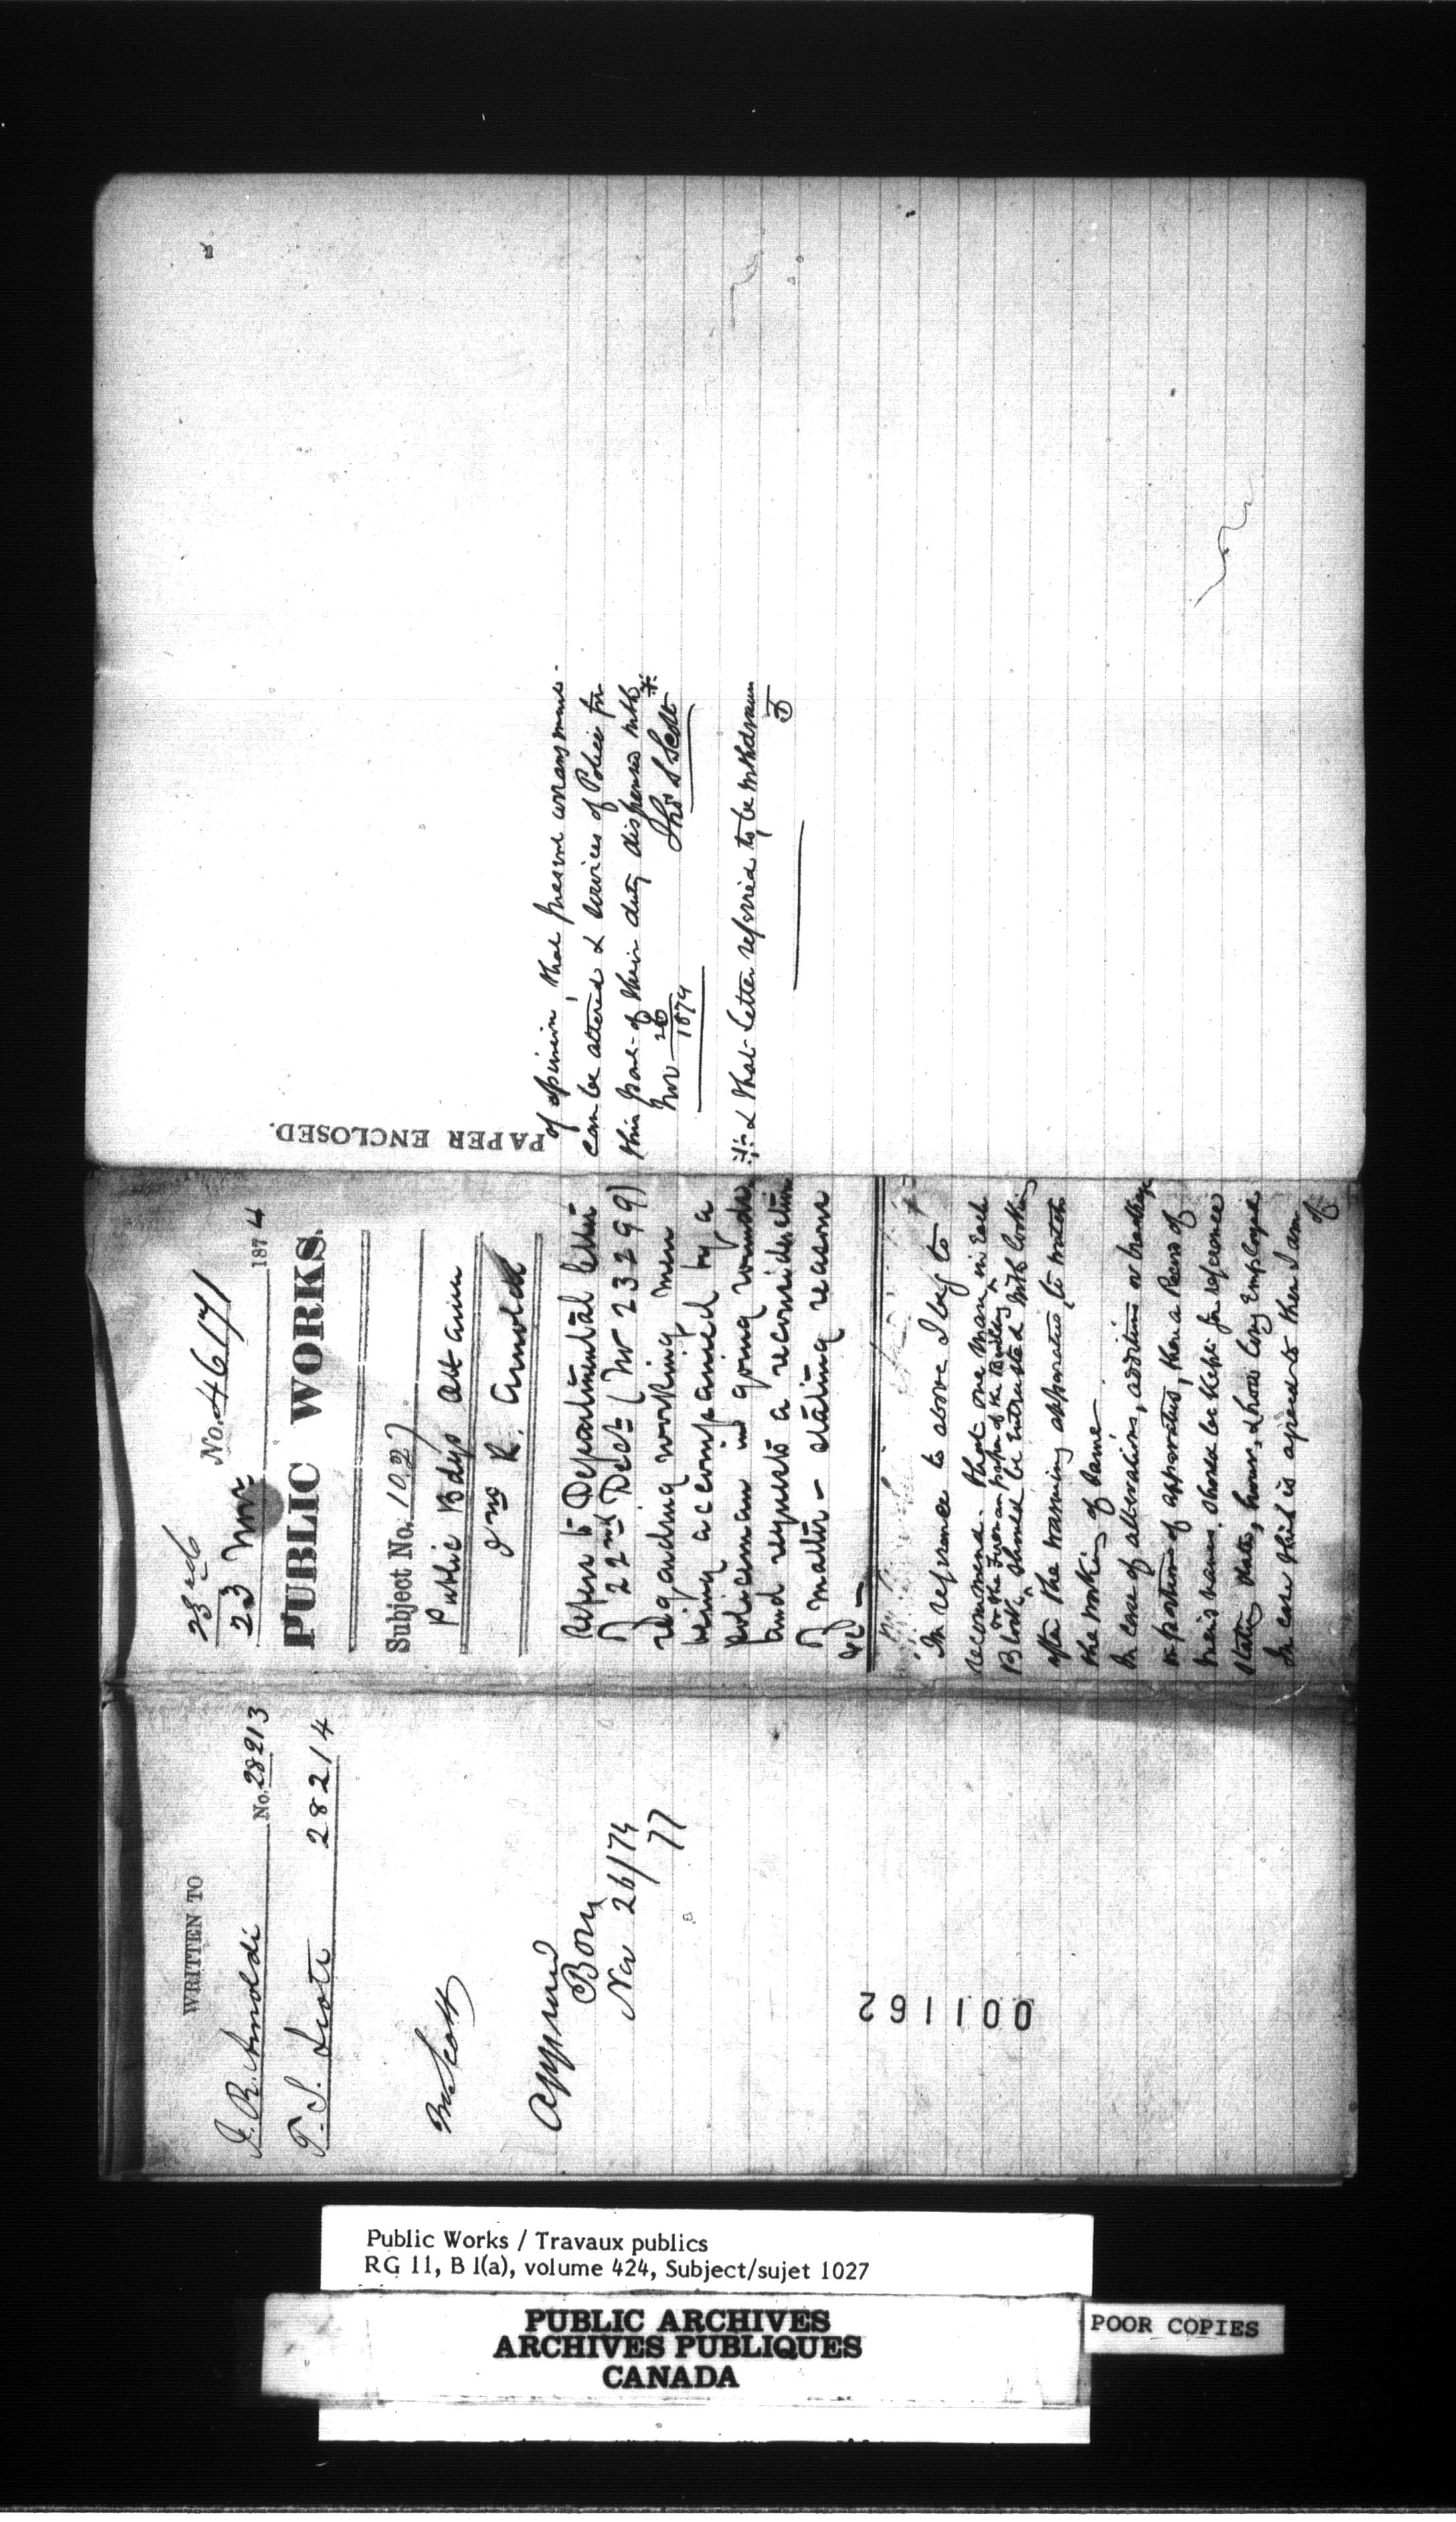 WRITTEN TO
J. R. Arnoldi No. 28213
T. S. Scott 28214
Mr Scott
Approved
Nov 26/74
77
001162
23
23 Novr No. 46171 1874
PUBLIC WORKS.
Subject No. 1027
Public Bdgs Ottawa
Jno R. Arnoldi
Refers to Departmental letter
of 22nd Dect (No 23299)
regarding working men
being accompanied by a
policeman in going rounds
and requests a reconsideration
of matter - stating reasons
&c -
In reference to above I beg to
recommend that one man in each
or the Fireman proper of the Building
Block should be intrusted with looking
after the warming apparatus, to watch
the working of same -
In case of alterations, addition or
or portion of apparatus, then a Record of
men's names should be kept for reference
stating date, hours, & how long employed.
In case this is agreed to then I am
of
PAPER ENCLOSED.
of opinion that present arrangement
can be altered & services of Police for
this part of their duty dispensed with *
Nov 26 1874 Thos S Scott
* & that letter referred to be withdrawn
Public Works / Travaux publics
RG 11, B 1(a), volume 424, Subject/sujet 1027
PUBLIC ARCHIVES
ARCHIVES PUBLIQUES
CANADA
POOR COPIES